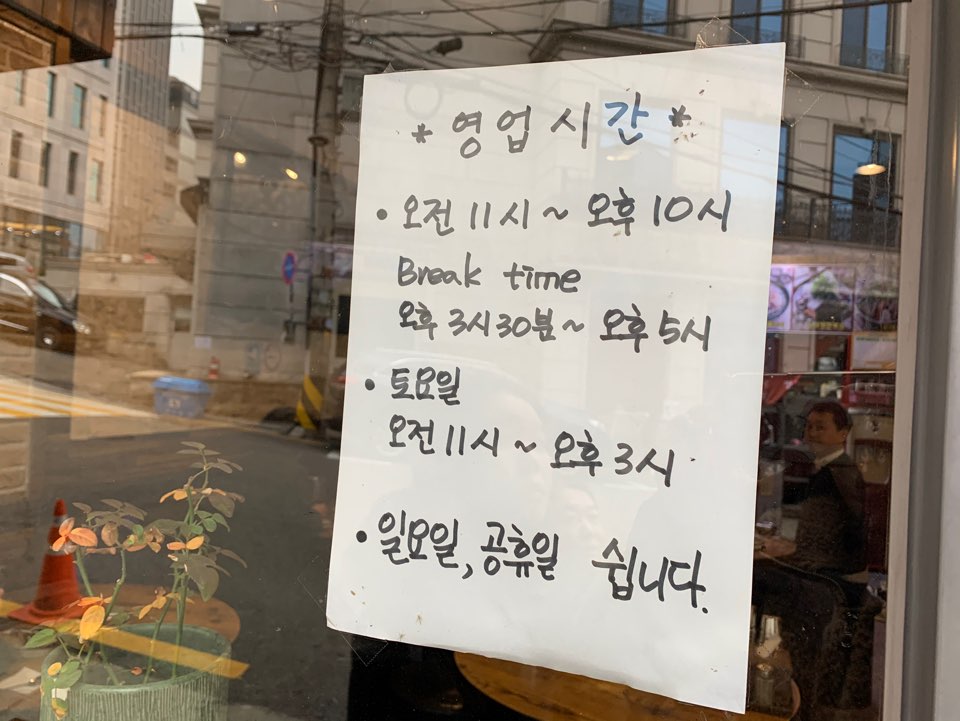 * 영업시간 *
• 오전 11시 ~ 오후 10시
Break time
오후 3시 30분 ~ 오후 5시
• 토요일
오전 11시 ~ 오후 3시
• 일요일, 공휴일 쉽니다.